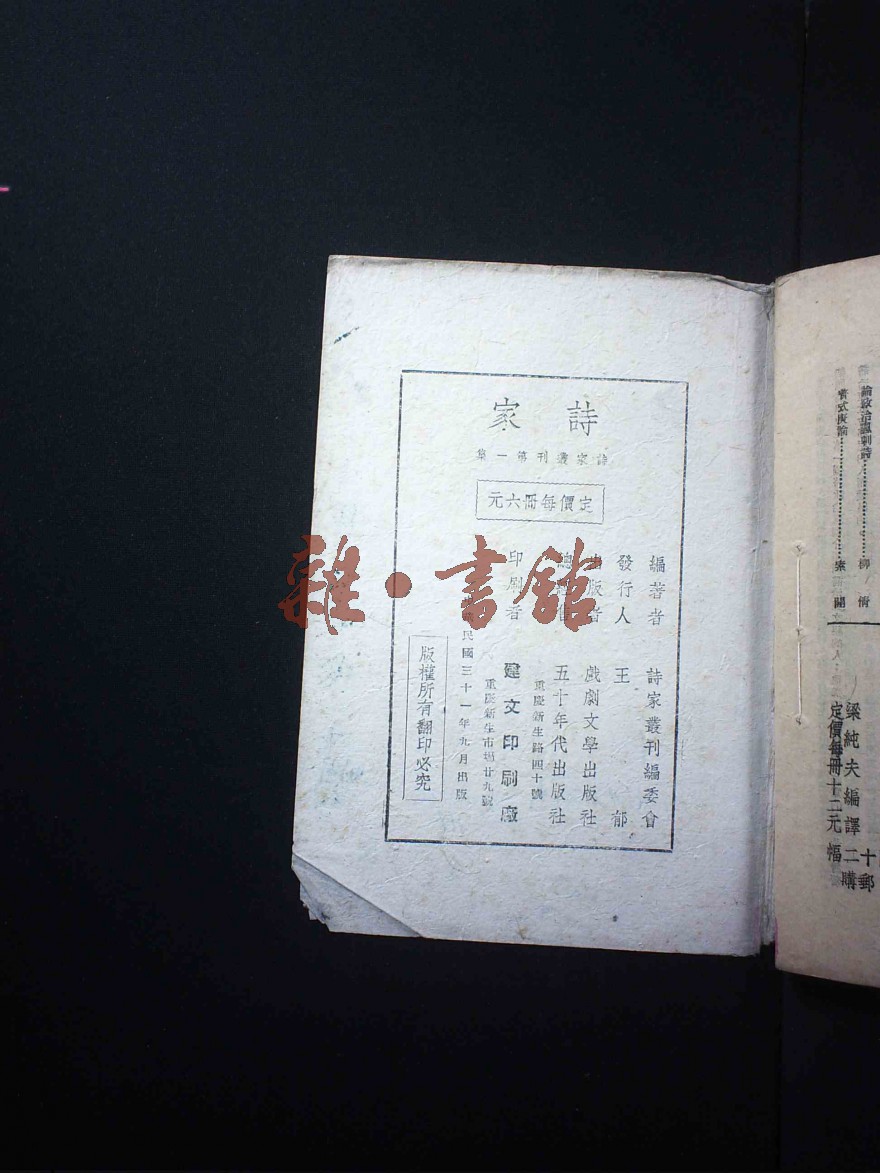 詩家
詩家叢刊第一集
定價每冊六元
編著者 詩家叢刊編委會
發行人 王郁
出版者 戲劇文學出版社
總經售 五十年代出版社
重慶新生路四十號
印刷者 建文印刷廠
重慶新生市場廿九號
民國三十一年九月出版
版權所有翻印必究
雜·書館
論政治諷刺詩 柳倩
梁純夫編譯二
定價每冊十二元
十郵
購
幅